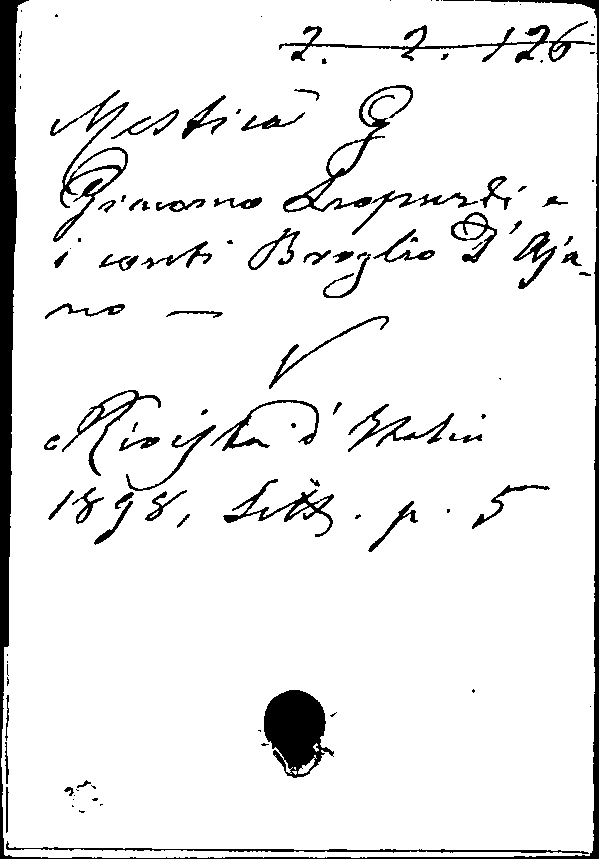 2. 2. 126
Mestica G
Giacomo Leopardi e
i conti Broglio D'Aja-
no —
V
Rivista d'Italia
1898, Sett. p. 5